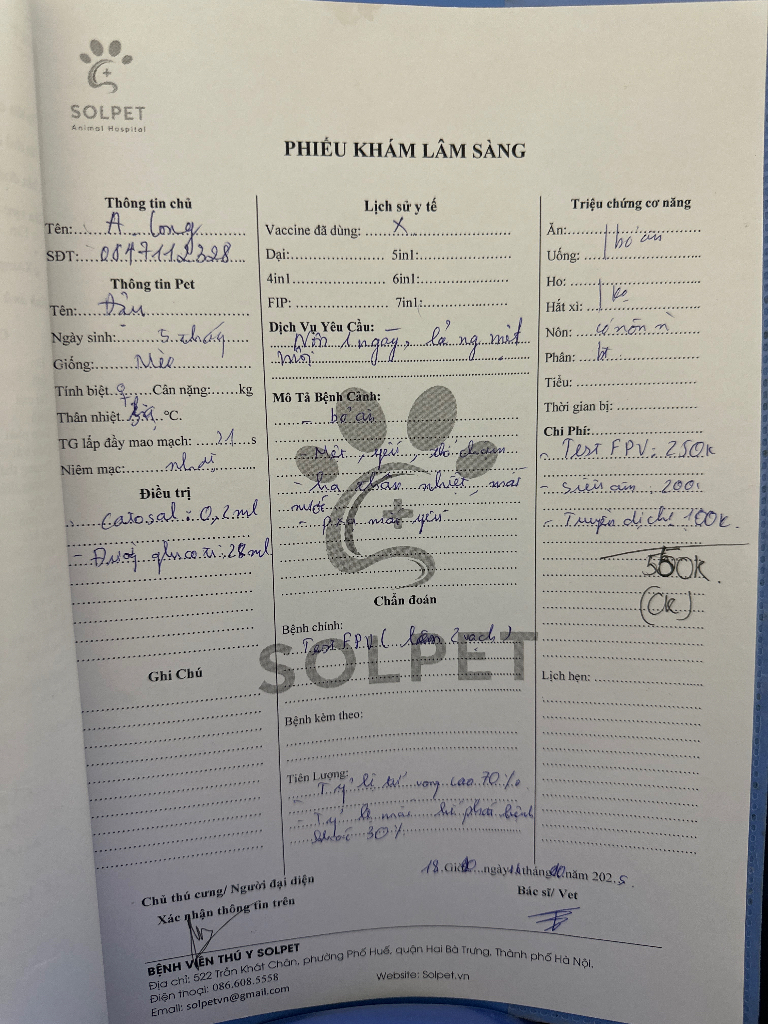 SOLPET
Animal Hospital
PHIẾU KHÁM LÂM SÀNG
Thông tin chủ
Tên: A. Long
SĐT: 0847112328
Thông tin Pet
Tên: Dâu
Ngày sinh: 5 tháng
Giống: Mèo
Tính biệt ♀ Cân nặng: kg
Thân nhiệt °C.
TG lấp đầy mao mạch: 21 s
Niêm mạc: nhợt
Điều trị
Catosal: 0,2ml
- Đường gluco: 28ml
Ghi Chú
Lịch sử y tế
Vaccine đã dùng: X
Dại: 5in1:
4in1 6in1:
FIP: 7in1:
Dịch Vụ Yêu Cầu:
Nôn 1 ngày,
Mô Tả Bệnh Cảnh:
- bỏ ăn
- Mệt, yếu,
- hạ thân nhiệt, mất
nước
yếu
Chẩn đoán
Bệnh chính:
Test FPV ( 2 vạch)
SOLPET
Bệnh kèm theo:
Tiên Lượng:
- Tỷ lệ tử vong cao 70%
- Tỷ lệ bệnh
khác 30%
Triệu chứng cơ năng
Ăn:
bỏ ăn
Uống:
Ho:
ko
Hắt xì:
Nôn: có nôn
Phân: bt
Tiểu:
Thời gian bị:
Chi Phí:
- Test FPV: 250k
- Siêu âm: 200
- Truyền dịch: 100k
550k
(CK)
Lịch hẹn:
18 Giờ ngày tháng 10 năm 2025
Chủ thú cưng/ Người đại diện
Xác nhận thông tin trên
Bác sĩ/ Vet
BỆNH VIỆN THÚ Y SOLPET
Địa chỉ: 522 Trần Khát Chân, phường Phố Huế, quận Hai Bà Trưng, Thành phố Hà Nội.
Điện thoại: 086.608.5558
Website: Solpet.vn
Email: solpetvn@gmail.com